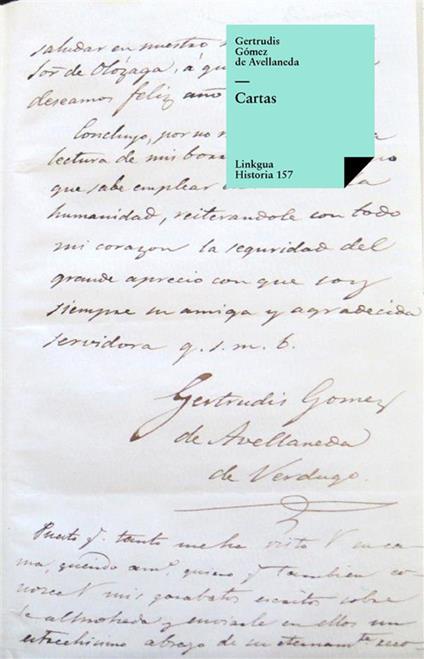 Gertrudis
Gómez
de Avellaneda
—
Cartas
Linkgua
Historia 157
saludar en nuestro
sor de Olózaga, á
deseamos feliz año
Concluyo, por no
lectura de mis
que sabe emplear
humanidad, reiterandole con todo
mi corazon la seguridad del
grande aprecio con que soy
siempre su amiga y agradecida
servidora q. s. m. b.
Gertrudis Gomez
de Avellaneda
de Verdugo.
Puesto q. tanto me ha visto V en ca-
ma, querido am.º quiero q. tambien co-
nozca V mis garabatos escritos sobre
la almohada y enviarle en ellos un
estrechisimo abrazo de su